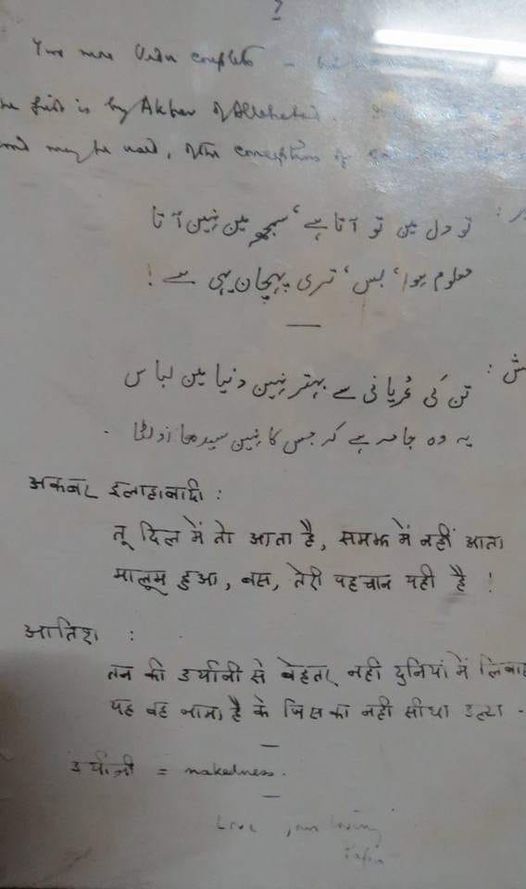 7
Two more Urdu couplets -
The first is by Akbar of Allahabad.
and may be used, of the conceptions of
تو دل میں تو آتا ہے، سمجھ میں نہیں آتا
معلوم ہوا، بس، تری پہچان یہی ہے!
تن کی عُریانی سے بہتر نہیں دنیا میں لباس
یہ وہ جامہ ہے کہ جس کا نہیں سیدھا اُلٹا
अकबर इलाहाबादी :
तू दिल में तो आता है, समझ में नहीं आता
मालूम हुआ, बस, तेरी पहचान यही है !
आतिश :
तन की उर्यानी से बेहतर नहीं दुनियां में लिबास
यह वह जामा है के जिस का नहीं सीधा उल्टा -
उर्यानी = nakedness.
Love, loving